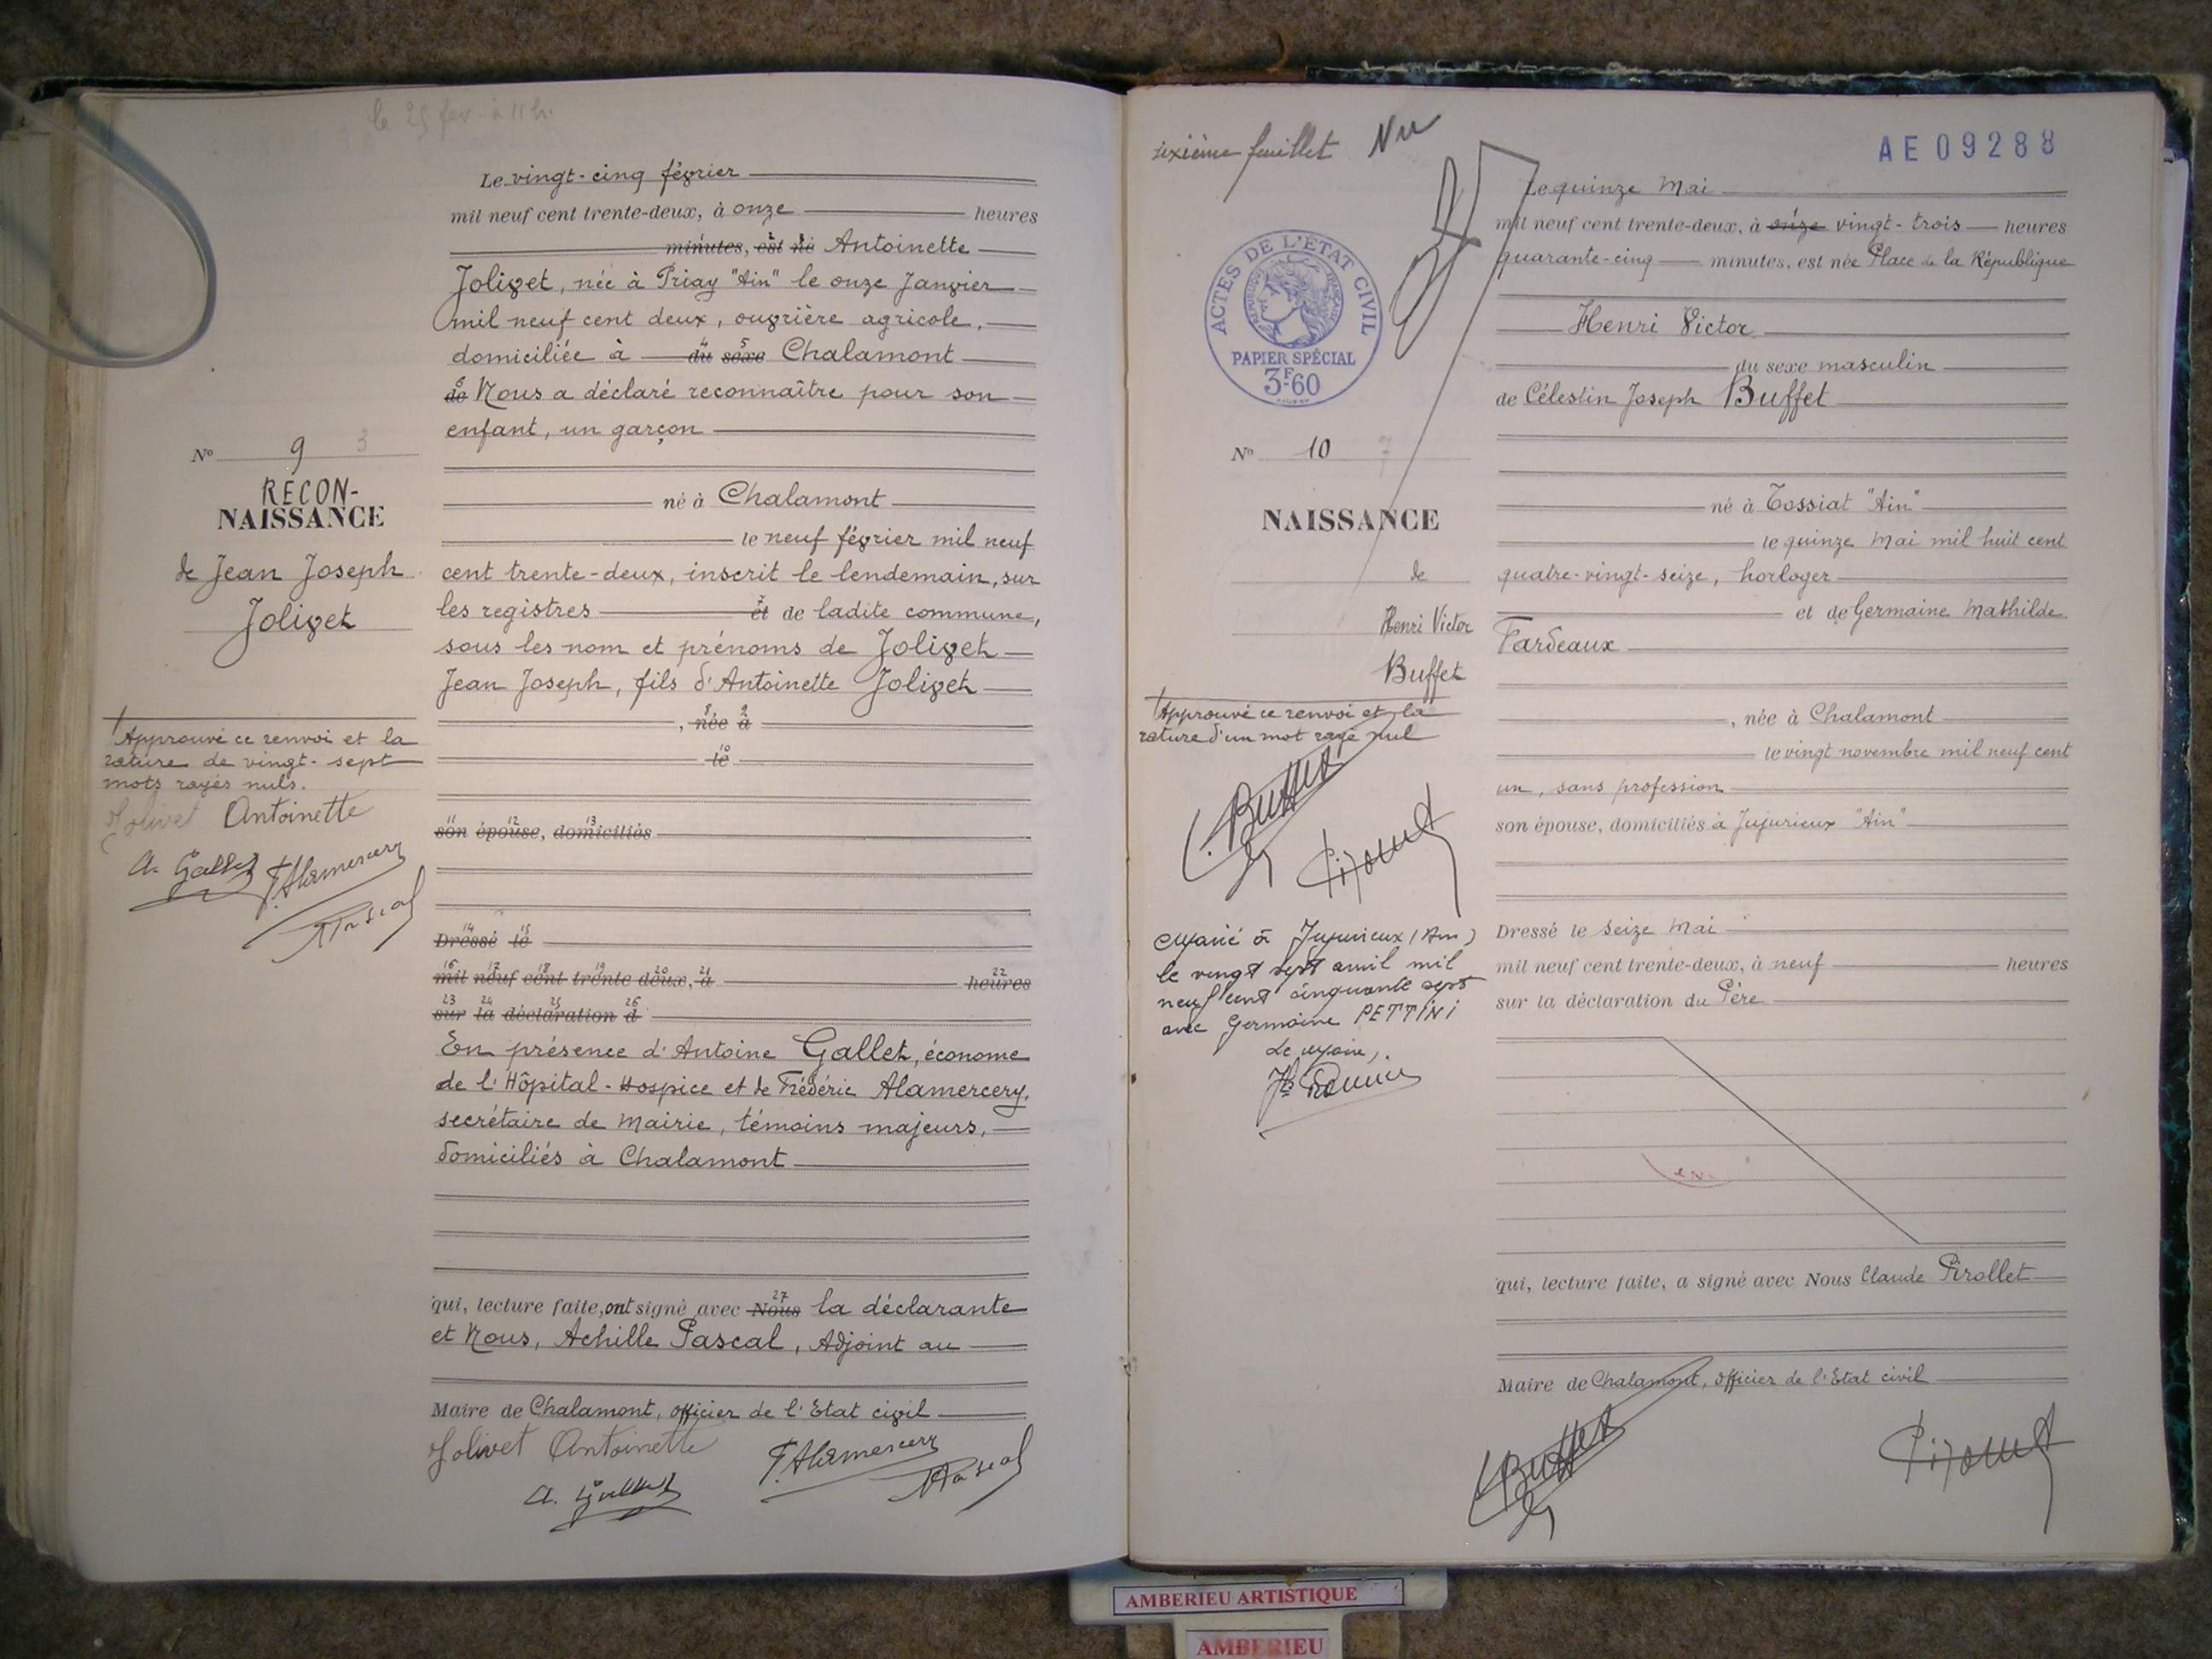 le 25 fev. à 11 h.
Le vingt-cinq février
mil neuf cent trente-deux, à onze heures
minutes, est né Antoinette
Jolivet, née à Priay "Ain" le onze Janvier
mil neuf cent deux, ouvrière agricole,
domiciliée à du sexe Chalamont
de Nous a déclaré reconnaître pour son
enfant, un garçon
né à Chalamont
le neuf février mil neuf
cent trente-deux, inscrit le lendemain, sur
les registres et de ladite commune,
sous les nom et prénoms de Jolivet
Jean Joseph, fils d'Antoinette Jolivet
, née à
le
son épouse, domiciliés
Dressé le
mil neuf cent trente deux, à heures
sur la déclaration d
En présence d'Antoine Gallet, économe
de l'Hôpital-Hospice et de Frédéric Alamercery,
secrétaire de Mairie, témoins majeurs,
domiciliés à Chalamont
qui, lecture faite, ont signé avec Nous la déclarante
et Nous, Achille Pascal, Adjoint au
Maire de Chalamont, officier de l'Etat civil
Jolivet Antoinette F. Alamercery
A. Gallet APascal
N° 9 3
RECON-
NAISSANCE
de Jean Joseph
Jolivet
Approuvé ce renvoi et la
rature de vingt-sept
mots rayés nuls.
Jolivet Antoinette
A. Gallet F. Alamercery
APascal
sixième feuillet
AE 09288
ACTES DE L'ETAT CIVIL
REPUBLIQUE FRANÇAISE
PAPIER SPÉCIAL
3F60
N° 10 7
NAISSANCE
de
Henri Victor
Buffet
Approuvé ce renvoi et la
rature d'un mot rayé nul
Buffet
Pirollet
Marié à Jujurieux (Ain)
le vingt sept avril mil
neuf cent cinquante sept
avec Germaine PETTINI
Le Maire,
Le quinze Mai
mil neuf cent trente-deux, à onze vingt-trois heures
quarante-cinq minutes, est née Place de la République
Henri Victor
du sexe masculin
de Célestin Joseph Buffet
né à Tossiat "Ain"
le quinze Mai mil huit cent
quatre-vingt-seize, horloger
et de Germaine Mathilde
Fardeaux
, née à Chalamont
le vingt novembre mil neuf cent
un, sans profession
son épouse, domiciliés à Jujurieux "Ain"
Dressé le seize Mai
mil neuf cent trente-deux, à neuf heures
sur la déclaration du Père
qui, lecture faite, a signé avec Nous Claude Pirollet
Maire de Chalamont, officier de l'Etat civil
Buffet
Pirollet
AMBERIEU ARTISTIQUE
AMBERIEU